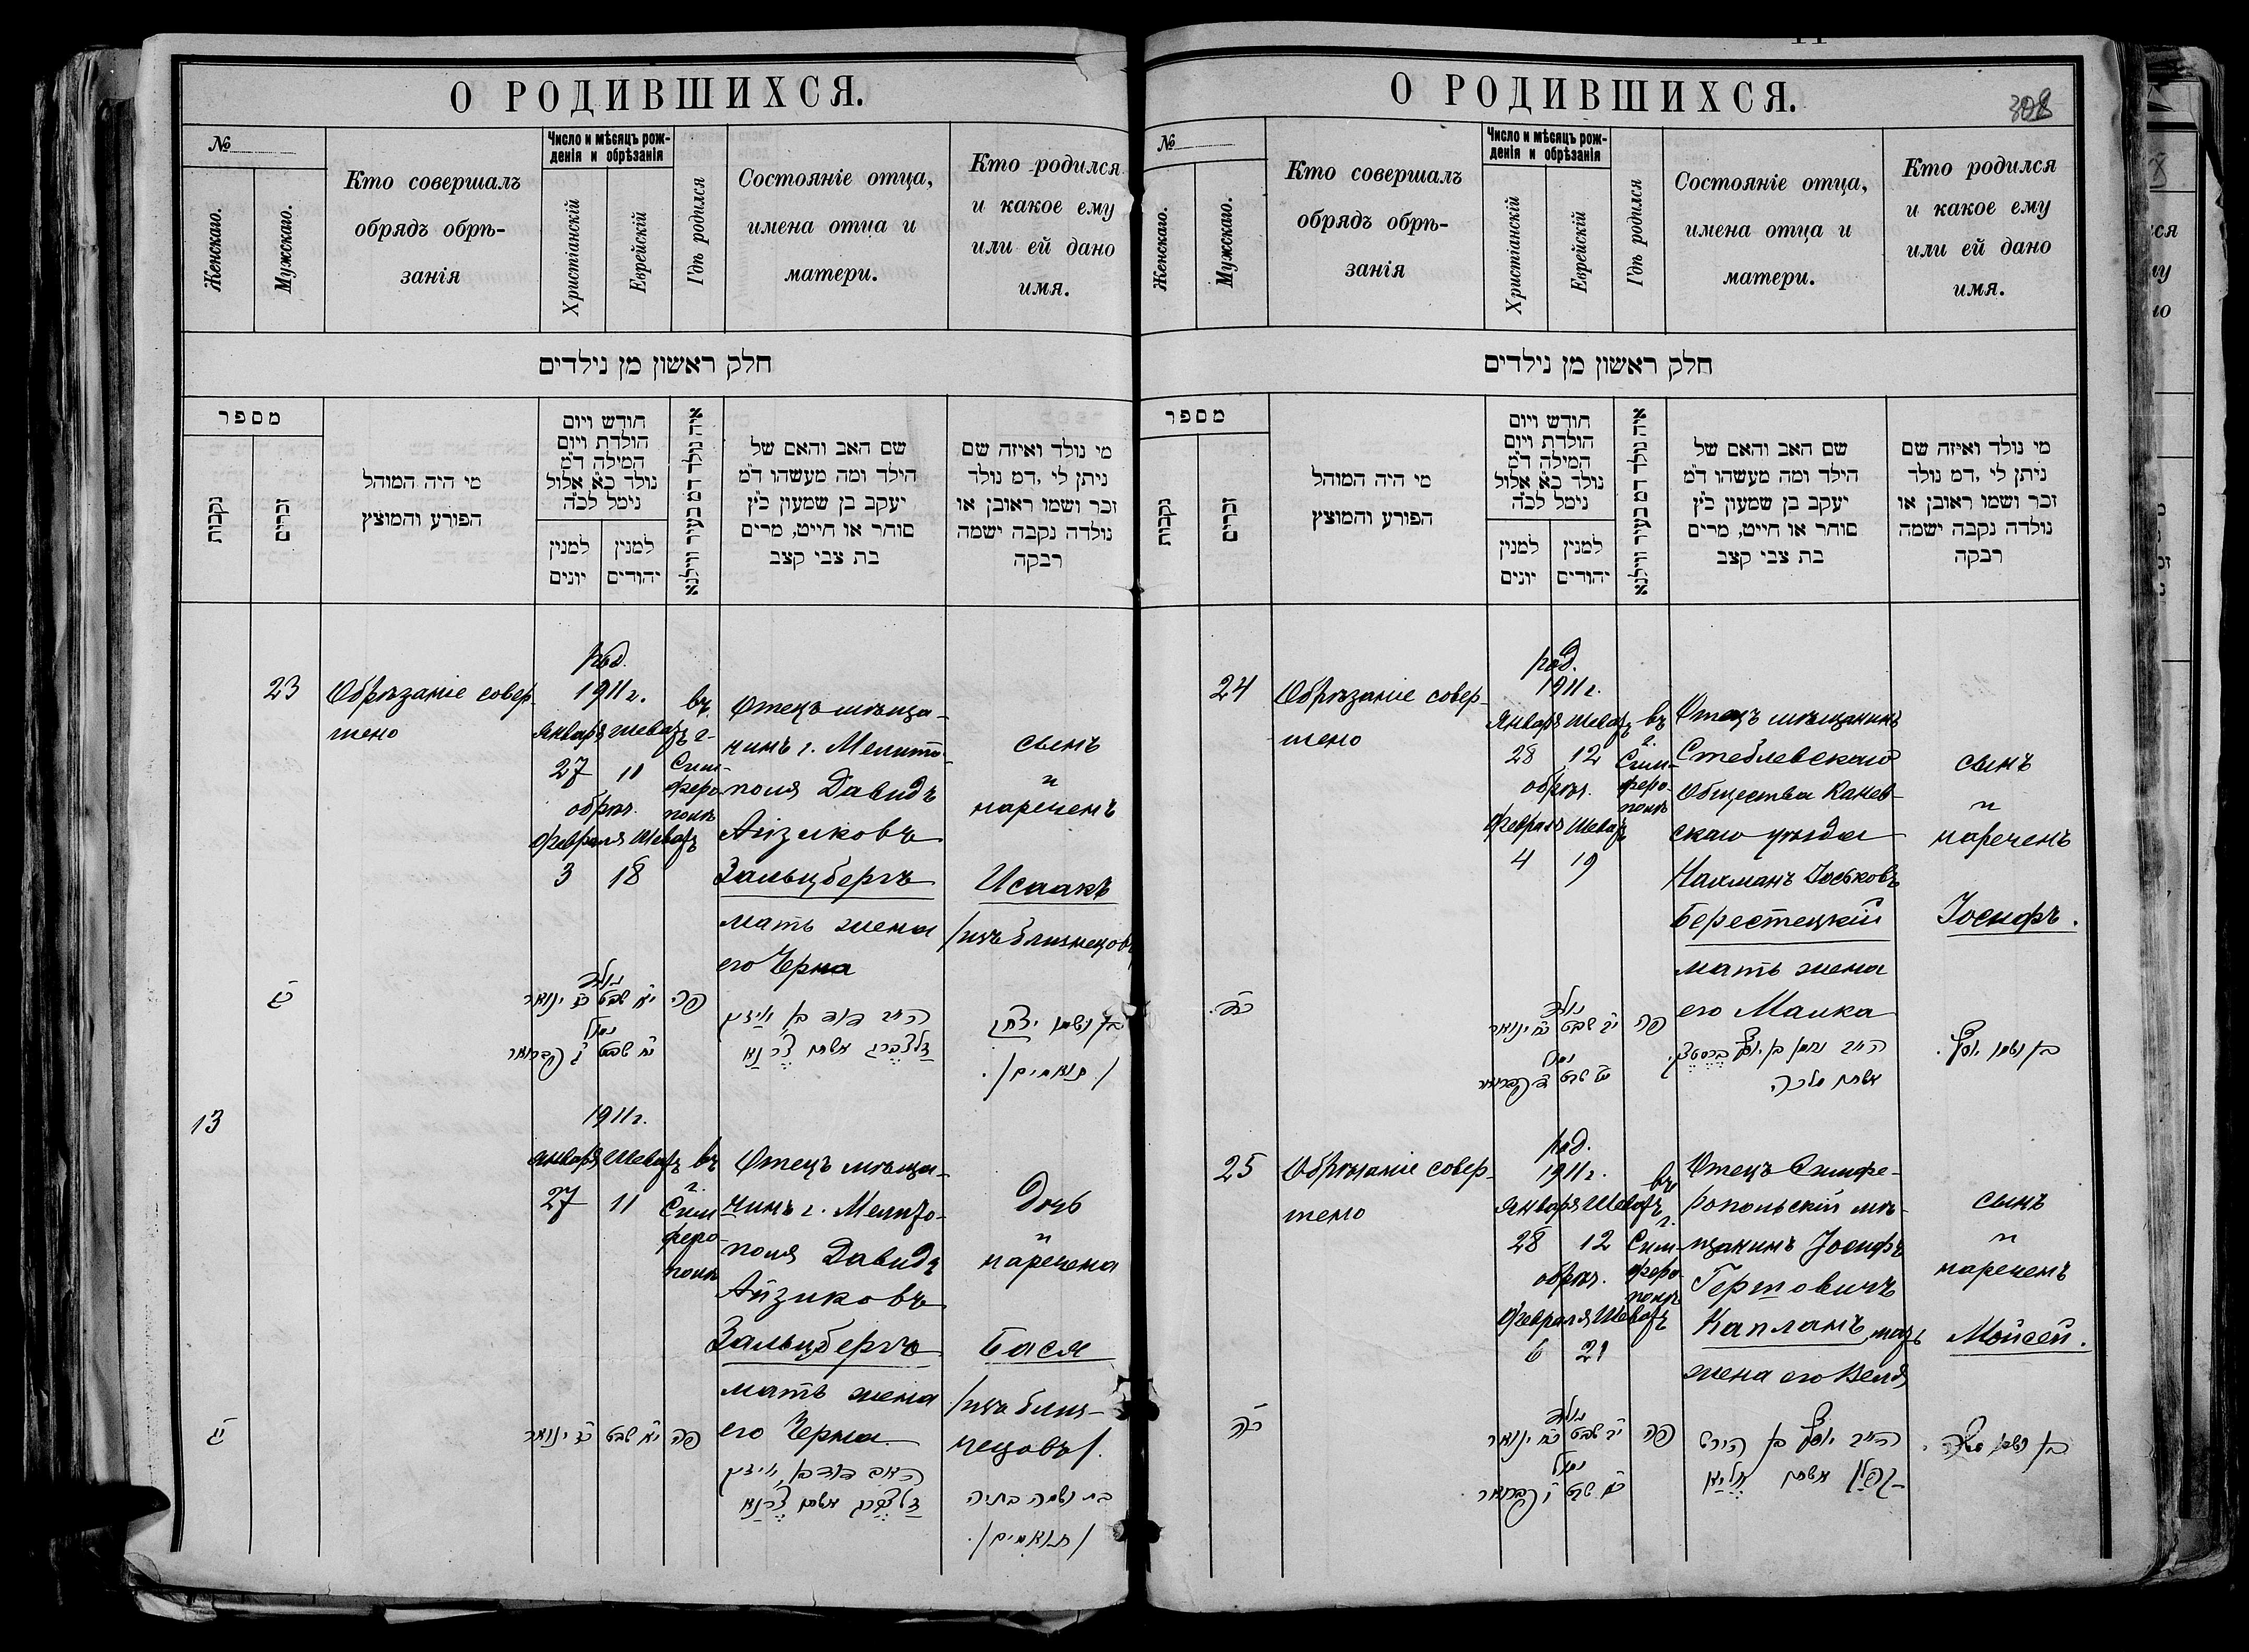 О РОДИВШИХСЯ.
№
Женскаго.
Мужскаго.
Кто совершалъ
обрядъ обрѣ-
занія
Число и мѣсяцъ рож-
денія и обрѣзанія
Христіанскій
Еврейскій
Гдѣ родился
Состояніе отца,
имена отца и
матери.
Кто родился
и какое ему
или ей дано
имя.
חלק ראשון מן נילדים
מספר
נקבות
זכרים
מי היה המוהל
הפורע והמוצץ
חודש ויום
הולדת ויום
המילה ד״מ
נולד כ״א אלול
נימל לכ״ה
למנין
יונים
למנין
יהודים
איה נולד דמ בעיר ווילנא
שם האב והאם של
הילד ומה מעשהו ד״מ
יעקב בן שמעון כ״ץ
סוחר או חייט, מרים
בת צבי קצב
מי נולד ואיזה שם
ניתן לי, דמ נולד
זכר ושמו ראובן או
נולדה נקבה ישמה
רבקה
23
Обрѣзаніе совер-
шено
род.
1911 г.
Января Шеватъ
27 11
обрѣз.
Февраля Шеватъ
3 18
въ
г.
Сим-
феро-
полѣ
Отецъ мѣща-
нинъ г. Мелито-
поля Давидъ
Айзиковъ
Зальцбергъ
мать жена
его Черна
сынъ
и
нареченъ
Исаакъ
/изъ близнецовъ
נולד
י״א שבט כ״ז ינואר
נמול
י״ח שבט ג׳ פברואר
פה
ה״ה דוד בן אייזיק
זלצברג אשתו צערנא
בן ושמו יצחק
/תאומים/.
13
1911 г.
Января Шеватъ
27 11
въ
г.
Сим-
феро-
полѣ
Отецъ мѣща-
нинъ г. Мелито-
поля Давидъ
Айзиковъ
Зальцбергъ
мать жена
его Черна.
Дочь
и
наречена
Бася
/изъ близ-
нецовъ/.
י״ג
י״א שבט כ״ז ינואר
פה
זלצברג אשתו צערנא
בת ושמה בתיה
/תאומים/.
О РОДИВШИХСЯ.
308
№
Женскаго.
Мужскаго.
Кто совершалъ
обрядъ обрѣ-
занія
Число и мѣсяцъ рож-
денія и обрѣзанія
Христіанскій
Еврейскій
Гдѣ родился
Состояніе отца,
имена отца и
матери.
Кто родился
и какое ему
или ей дано
имя.
חלק ראשון מן נילדים
מספר
נקבות
זכרים
מי היה המוהל
הפורע והמוצץ
חודש ויום
הולדת ויום
המילה ד״מ
נולד כ״א אלול
נימל לכ״ה
למנין
יונים
למנין
יהודים
איה נולד דמ בעיר ווילנא
שם האב והאם של
הילד ומה מעשהו ד״מ
יעקב בן שמעון כ״ץ
סוחר או חייט, מרים
בת צבי קצב
מי נולד ואיזה שם
ניתן לי, דמ נולד
זכר ושמו ראובן או
נולדה נקבה ישמה
רבקה
24
Обрѣзаніе совер-
шено
род.
1911 г.
Января Шеватъ
28 12
обрѣз.
Февраля Шеватъ
4 19
въ
г.
Сим-
феро-
полѣ
Отецъ мѣщанинъ
Стеблевскаго
Общества Канев-
скаго уѣзда
Нахманъ Іоськовъ
Берестецкій
мать жена
его Малка
сынъ
и
нареченъ
Іосифъ.
כ״ד
נולד
י״ב שבט כ״ח ינואר
נמול
י״ט שבט ד׳ פברואר
פה
ה״ה נחמן בן יוסף
אשתו מלכה
בן ושמו יוסף.
25
Обрѣзаніе совер-
шено
род.
1911 г.
Января Шеватъ
28 12
обрѣз.
Февраля Шеватъ
6 21
въ
г.
Сим-
феро-
полѣ
Отецъ Симфе-
ропольскій мѣ-
щанинъ Іосифъ
Гертовичъ
Капланъ, мать
жена его Веля
сынъ
и
нареченъ
Мойсей.
כ״ה
נולד
י״ב שבט כ״ח ינואר
נמול
כ״א שבט ו׳ פברואר
פה
ה״ה יוסף בן הירט
קפלן אשתו
בן ושמו משה.